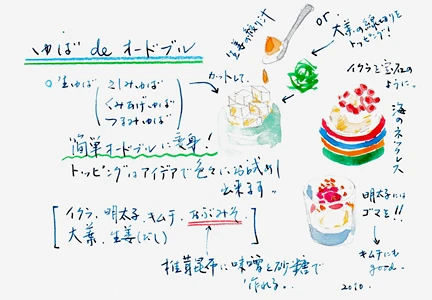 ゆば de オードブル
○生ゆば
さしみゆば
くみあげゆば
つまみゆば
簡単オードブルに変身!
トッピングはアイデアで色々にお試め
し出来ます。
イクラ、明太子、キムチ、なぶみそ、
大葉、生姜(だし)
椎茸昆布に味噌と砂糖で
作れる。
カットして、
生姜の絞り汁
or
大葉の線切りを
トッピング!
イクラを宝石の
ように。
海のネックレス
明太子には
ゴマを!!
キムチにも
good.
2010.